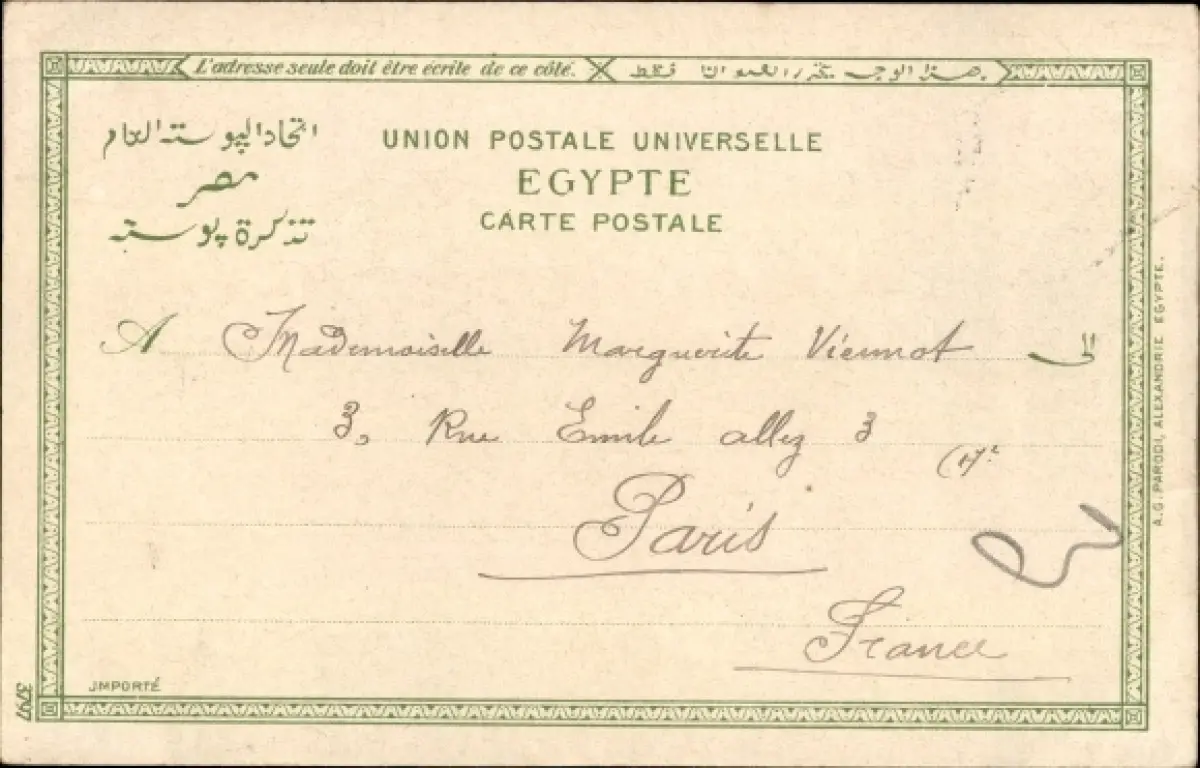 L'adresse seule doit être écrite de ce côté. هذا الوجه مختص بالعنوان فقط
اتحاد البوسته العام
مصر
تذكرة بوسته
UNION POSTALE UNIVERSELLE
EGYPTE
CARTE POSTALE
A Mademoiselle Marguerite Viennot الى
3, Rue Emile allez 3
(17e
Paris
France
JMPORTÉ
3797
A.G. PARODI, ALEXANDRIE EGYPTE.